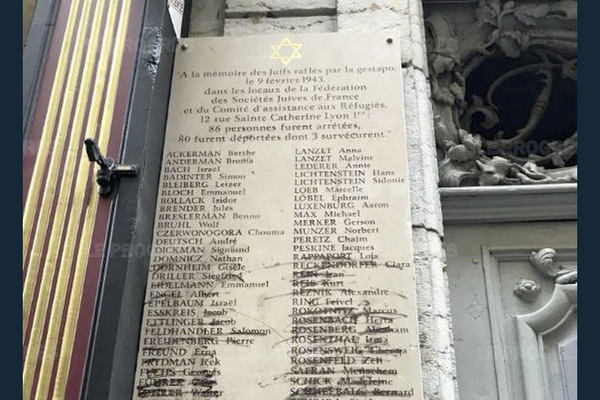 "A la mémoire des Juifs raflés par la gestapo,
le 9 février 1943,
dans les locaux de la Fédération
des Sociétés Juives de France
et du Comité d'assistance aux Réfugiés,
12 rue Sainte Catherine Lyon 1er :
86 personnes furent arrêtées,
80 furent déportées dont 3 survécurent."
ACKERMAN Berthe
ANDERMAN Bronia
BACH Israel
BADINTER Simon
BLEIBERG Leizer
BLOCH Emmanuel
BOLLACK Isidor
BRENDER Jules
BRESLERMAN Benno
BRUHL Wolf
CZERWONOGORA Chouma
DEUTSCH André
DICKMAN Sigmund
DOMNICZ Nathan
DORNHEIM Gisèle
DRILLER Siegfried
EDELMANN Emmanuel
ENGEL Albert
EPELBAUM Israël
ESSKREIS Jacob
ETTLINGER Jacob
FELDHANDLER Salomon
FREIDENBERG Pierre
FREUND Erna
FRYDMAN Icek
FUCHS Georges
FÜHRER
Walter
LANZET Anna
LANZET Malvine
LEDERER Annie
LICHTENSTEIN Hans
LICHTENSTEIN Sidonie
LOEB Marcelle
LÖBEL Ephraim
LUXENBURG Aaron
MAX Michael
MERKER Gerson
MUNZER Norbert
PERETZ Chaïm
PESKINE Jacques
RAPPAPORT Loja
RECKENDORFER Clara
REIN Jean
REIS Kurt
REZNIK Alexandre
RING Feivel
ROKOTNITZ Marcus
ROSENBACH Herta
ROSENBERG Abraham
ROSENTHAL Irma
ROSENSWEIG
ROSENFELD
SAFRAN Menachem
SCHICK Madeleine
SCHNEEBALG Bernard